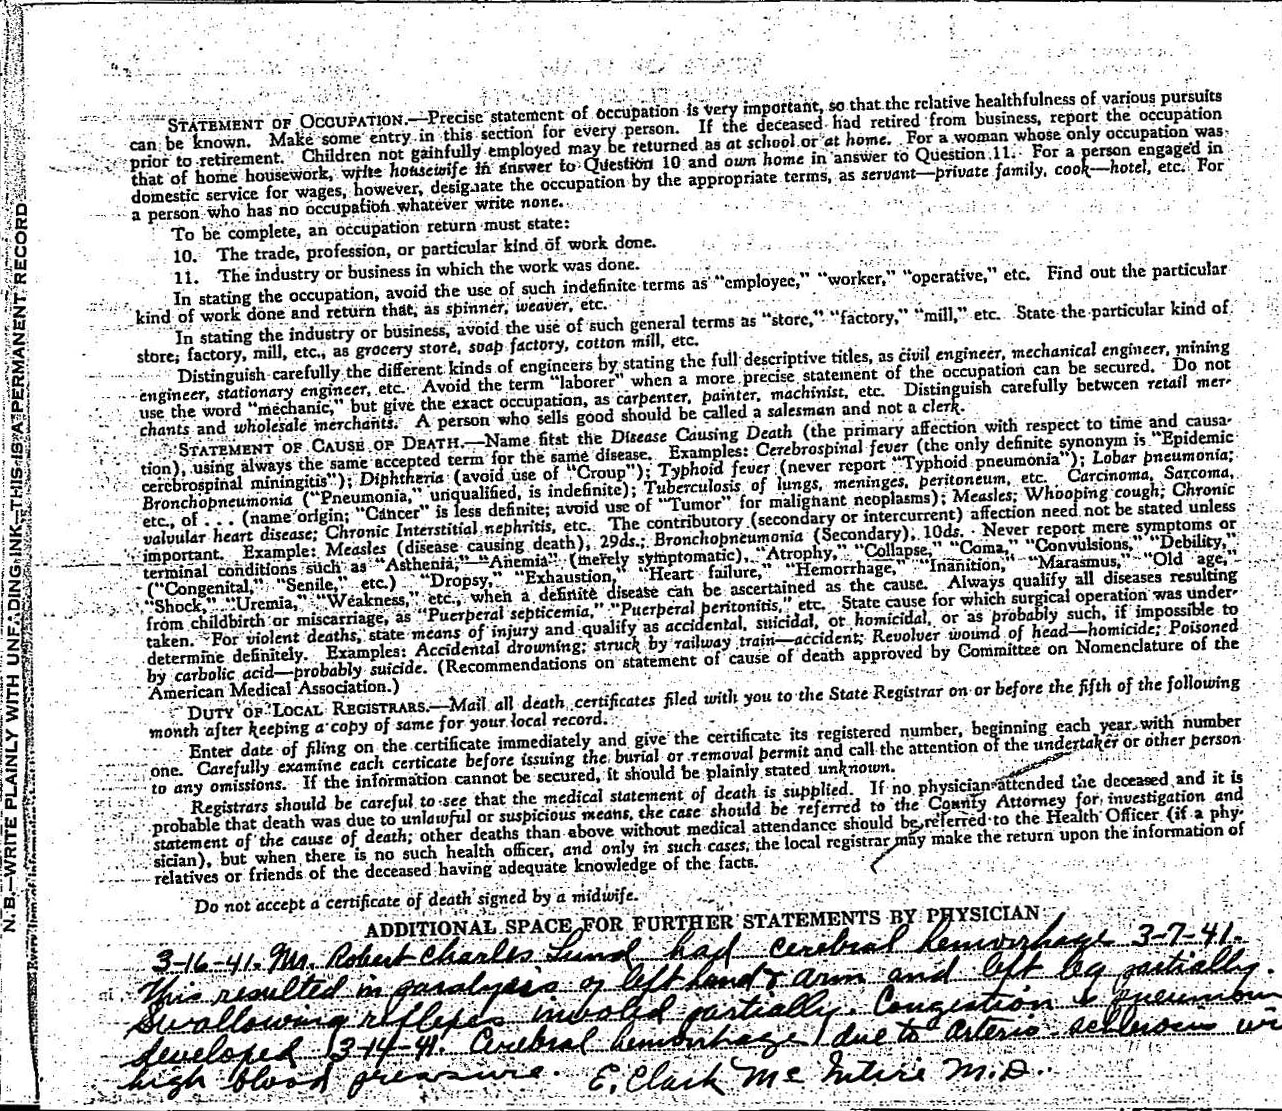 N. B.—WRITE PLAINLY WITH UNFADING INK—THIS IS A PERMANENT RECORD
STATEMENT OF OCCUPATION.—Precise statement of occupation is very important, so that the relative healthfulness of various pursuits
can be known. Make some entry in this section for every person. If the deceased had retired from business, report the occupation
prior to retirement. Children not gainfully employed may be returned as at school or at home. For a woman whose only occupation was
that of home housework, write housewife in answer to Question 10 and own home in answer to Question 11. For a person engaged in
domestic service for wages, however, designate the occupation by the appropriate terms, as servant—private family, cook—hotel, etc. For
a person who has no occupation whatever write none.
To be complete, an occupation return must state:
10. The trade, profession, or particular kind of work done.
11. The industry or business in which the work was done.
In stating the occupation, avoid the use of such indefinite terms as "employee," "worker," "operative," etc. Find out the particular
kind of work done and return that, as spinner, weaver, etc.
In stating the industry or business, avoid the use of such general terms as "store," "factory," "mill," etc. State the particular kind of
store, factory, mill, etc., as grocery store, soap factory, cotton mill, etc.
Distinguish carefully the different kinds of engineers by stating the full descriptive titles, as civil engineer, mechanical engineer, mining
engineer, stationary engineer, etc. Avoid the term "laborer" when a more precise statement of the occupation can be secured. Do not
use the word "mechanic," but give the exact occupation, as carpenter, painter, machinist, etc. Distinguish carefully between retail mer-
chants and wholesale merchants. A person who sells good should be called a salesman and not a clerk.
STATEMENT OF CAUSE OF DEATH.—Name first the Disease Causing Death (the primary affection with respect to time and causa-
tion), using always the same accepted term for the same disease. Examples: Cerebrospinal fever (the only definite synonym is "Epidemic
cerebrospinal miningitis"); Diphtheria (avoid use of "Croup"); Typhoid fever (never report "Typhoid pneumonia"); Lobar pneumonia;
Bronchopneumonia ("Pneumonia," unqualified, is indefinite); Tuberculosis of lungs, meninges, peritoneum, etc. Carcinoma, Sarcoma,
etc., of . . . (name origin; "Cancer" is less definite; avoid use of "Tumor" for malignant neoplasms); Measles; Whooping cough; Chronic
valvular heart disease; Chronic Interstitial nephritis, etc. The contributory (secondary or intercurrent) affection need not be stated unless
important. Example: Measles (disease causing death), 29ds.; Bronchopneumonia (Secondary), 10ds. Never report mere symptoms or
terminal conditions such as "Asthenia," "Anemia" (merely symptomatic), "Atrophy," "Collapse," "Coma," "Convulsions," "Debility,"
("Congenital," "Senile," etc.) "Dropsy," "Exhaustion," "Heart failure," "Hemorrhage," "Inanition," "Marasmus," "Old age,"
"Shock," "Uremia," "Weakness," etc., when a definite disease can be ascertained as the cause. Always qualify all diseases resulting
from childbirth or miscarriage, as "Puerperal septicemia," "Puerperal peritonitis," etc. State cause for which surgical operation was under-
taken. For violent deaths, state means of injury and qualify as accidental, suicidal, or homicidal, or as probably such, if impossible to
determine definitely. Examples: Accidental drowning; struck by railway train—accident; Revolver wound of head—homicide; Poisoned
by carbolic acid—probably suicide. (Recommendations on statement of cause of death approved by Committee on Nomenclature of the
American Medical Association.)
DUTY OF LOCAL REGISTRARS.—Mail all death certificates filed with you to the State Registrar on or before the fifth of the following
month after keeping a copy of same for your local record.
Enter date of filing on the certificate immediately and give the certificate its registered number, beginning each year with number
one. Carefully examine each certicate before issuing the burial or removal permit and call the attention of the undertaker or other person
to any omissions. If the information cannot be secured, it should be plainly stated unknown.
Registrars should be careful to see that the medical statement of death is supplied. If no physician attended the deceased and it is
probable that death was due to unlawful or suspicious means, the case should be referred to the County Attorney for investigation and
statement of the cause of death; other deaths than above without medical attendance should be referred to the Health Officer (if a phy-
sician), but when there is no such health officer, and only in such cases, the local registrar may make the return upon the information of
relatives or friends of the deceased having adequate knowledge of the facts.
Do not accept a certificate of death signed by a midwife.
ADDITIONAL SPACE FOR FURTHER STATEMENTS BY PHYSICIAN
3-16-41. Mr. Robert Charles Lund had cerebral hemorrhage 3-7-41.
This resulted in paralysis of left hand & arm and left leg partially.
Swallowing reflexes involed partially. Congestion & pneumon
developed 3-14-41. Cerebral hemorrhage due to arterio-sclerosis wi
high blood pressure. E. Clark Mc Intire M.D.